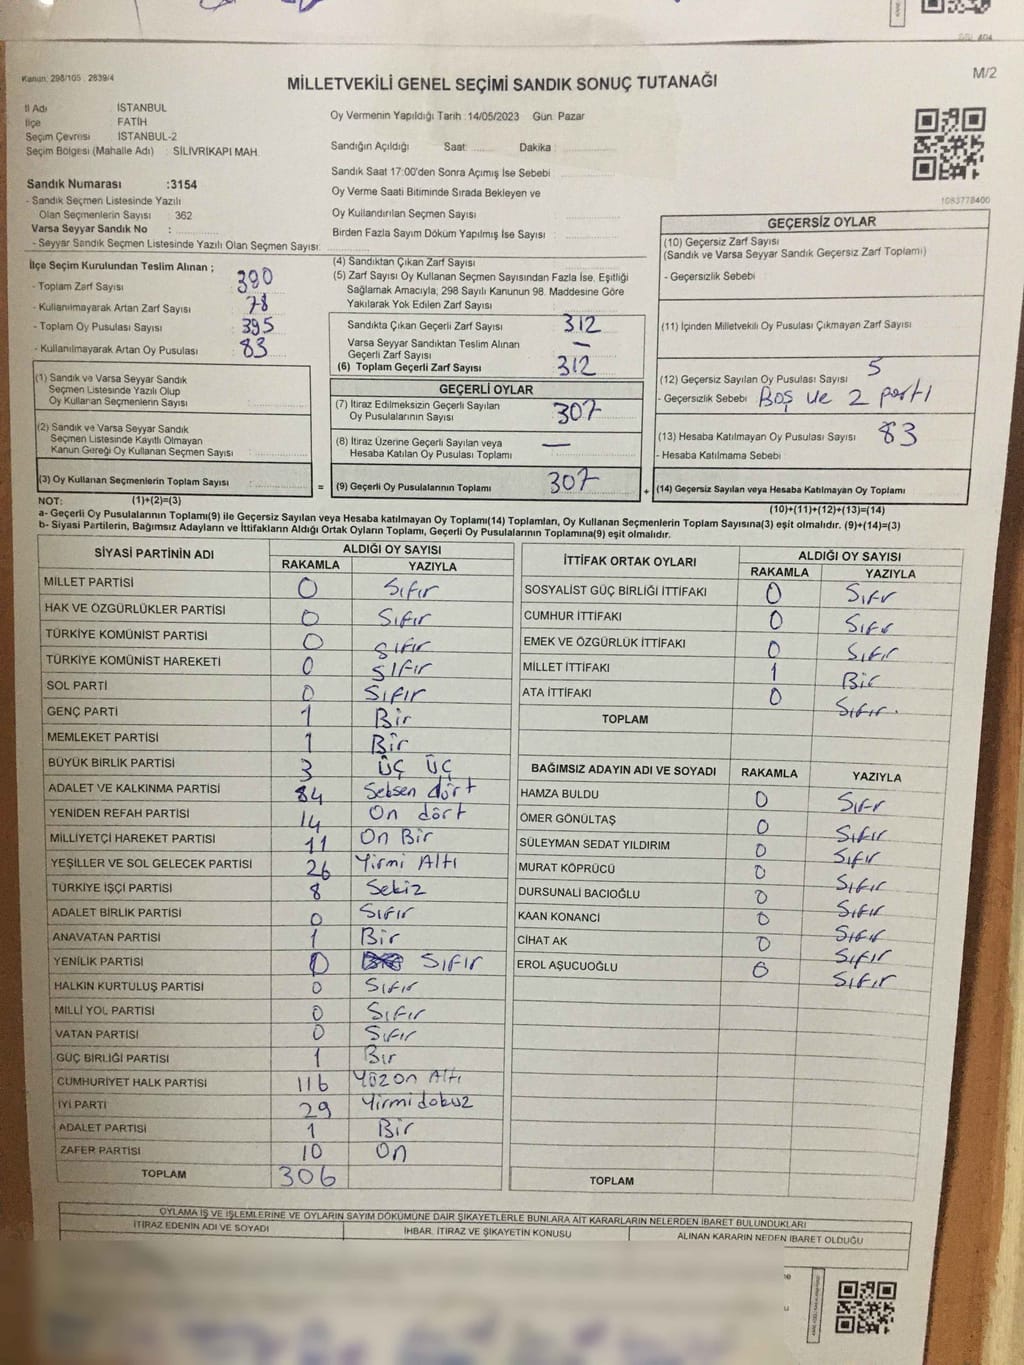 Kanun: 298/105 : 2839/4
MİLLETVEKİLİ GENEL SEÇİMİ SANDIK SONUÇ TUTANAĞI
M/2
İl Adı İSTANBUL
İlçe FATİH
Seçim Çevresi İSTANBUL-2
Seçim Bölgesi (Mahalle Adı) : SİLİVRİKAPI MAH.
Sandık Numarası :3154
- Sandık Seçmen Listesinde Yazılı
Olan Seçmenlerin Sayısı : 362
Varsa Seyyar Sandık No :
- Seyyar Sandık Seçmen Listesinde Yazılı Olan Seçmen Sayısı:
Oy Vermenin Yapıldığı Tarih :14/05/2023 Gün: Pazar
Sandığın Açıldığı Saat: Dakika:
Sandık Saat 17:00'den Sonra Açımış İse Sebebi
Oy Verme Saati Bitiminde Sırada Bekleyen ve
Oy Kullandırılan Seçmen Sayısı :
Birden Fazla Sayım Döküm Yapılmış İse Sayısı :
1083778400
İlçe Seçim Kurulundan Teslim Alınan ;
- Toplam Zarf Sayısı : 390
- Kullanılmayarak Artan Zarf Sayısı : 78
- Toplam Oy Pusulası Sayısı : 395
- Kullanılmayarak Artan Oy Pusulası : 83
(1) Sandık ve Varsa Seyyar Sandık
Seçmen Listesinde Yazılı Olup
Oy Kullanan Seçmenlerin Sayısı :
(2) Sandık ve Varsa Seyyar Sandık
Seçmen Listesinde Kayıtlı Olmayan
Kanun Gereği Oy Kullanan Seçmen Sayısı :
(3) Oy Kullanan Seçmenlerin Toplam Sayısı :
(4) Sandıktan Çıkan Zarf Sayısı
(5) Zarf Sayısı Oy Kullanan Seçmen Sayısından Fazla İse, Eşitliği
Sağlamak Amacıyla, 298 Sayılı Kanunun 98. Maddesine Göre
Yakılarak Yok Edilen Zarf Sayısı :
Sandıkta Çıkan Geçerli Zarf Sayısı : 312
Varsa Seyyar Sandıktan Teslim Alınan
Geçerli Zarf Sayısı : —
(6) Toplam Geçerli Zarf Sayısı : 312
GEÇERLİ OYLAR
(7) İtiraz Edilmeksizin Geçerli Sayılan
Oy Pusulalarının Sayısı : 307
(8) İtiraz Üzerine Geçerli Sayılan veya
Hesaba Katılan Oy Pusulası Toplamı : —
= (9) Geçerli Oy Pusulalarının Toplamı : 307
GEÇERSİZ OYLAR
(10) Geçersiz Zarf Sayısı
(Sandık ve Varsa Seyyar Sandık Geçersiz Zarf Toplamı)
- Geçersizlik Sebebi :
(11) İçinden Milletvekili Oy Pusulası Çıkmayan Zarf Sayısı
(12) Geçersiz Sayılan Oy Pusulası Sayısı : 5
- Geçersizlik Sebebi : Boş ve 2 parti
(13) Hesaba Katılmayan Oy Pusulası Sayısı : 83
- Hesaba Katılmama Sebebi :
+ (14) Geçersiz Sayılan veya Hesaba Katılmayan Oy Toplamı :
NOT: (1)+(2)=(3)
(10)+(11)+(12)+(13)=(14)
a- Geçerli Oy Pusulalarının Toplamı(9) ile Geçersiz Sayılan veya Hesaba katılmayan Oy Toplamı(14) Toplamları, Oy Kullanan Seçmenlerin Toplam Sayısına(3) eşit olmalıdır. (9)+(14)=(3)
b- Siyasi Partilerin, Bağımsız Adayların ve İttifakların Aldığı Ortak Oyların Toplamı, Geçerli Oy Pusulalarının Toplamına(9) eşit olmalıdır.
SİYASİ PARTİNİN ADI ALDIĞI OY SAYISI
RAKAMLA YAZIYLA
MİLLET PARTİSİ 0 Sıfır
HAK VE ÖZGÜRLÜKLER PARTİSİ 0 Sıfır
TÜRKİYE KOMÜNİST PARTİSİ 0 Sıfır
TÜRKİYE KOMÜNİST HAREKETİ 0 Sıfır
SOL PARTİ 0 Sıfır
GENÇ PARTİ 1 Bir
MEMLEKET PARTİSİ 1 Bir
BÜYÜK BİRLİK PARTİSİ 3 Üç Üç
ADALET VE KALKINMA PARTİSİ 84 Seksen dört
YENİDEN REFAH PARTİSİ 14 On dört
MİLLİYETÇİ HAREKET PARTİSİ 11 On Bir
YEŞİLLER VE SOL GELECEK PARTİSİ 26 Yirmi Altı
TÜRKİYE İŞÇİ PARTİSİ 8 Sekiz
ADALET BİRLİK PARTİSİ 0 Sıfır
ANAVATAN PARTİSİ 1 Bir
YENİLİK PARTİSİ 0 Sıfır
HALKIN KURTULUŞ PARTİSİ 0 Sıfır
MİLLİ YOL PARTİSİ 0 Sıfır
VATAN PARTİSİ 0 Sıfır
GÜÇ BİRLİĞİ PARTİSİ 1 Bir
CUMHURİYET HALK PARTİSİ 116 Yüz on Altı
İYİ PARTİ 29 Yirmi dokuz
ADALET PARTİSİ 1 Bir
ZAFER PARTİSİ 10 On
TOPLAM 306
İTTİFAK ORTAK OYLARI ALDIĞI OY SAYISI
RAKAMLA YAZIYLA
SOSYALİST GÜÇ BİRLİĞİ İTTİFAKI 0 Sıfır
CUMHUR İTTİFAKI 0 Sıfır
EMEK VE ÖZGÜRLÜK İTTİFAKI 0 Sıfır
MİLLET İTTİFAKI 1 Bir
ATA İTTİFAKI 0 Sıfır.
TOPLAM
BAĞIMSIZ ADAYIN ADI VE SOYADI RAKAMLA YAZIYLA
HAMZA BULDU 0 Sıfır
ÖMER GÖNÜLTAŞ 0 Sıfır
SÜLEYMAN SEDAT YILDIRIM 0 Sıfır
MURAT KÖPRÜCÜ 0 Sıfır
DURSUNALİ BACIOĞLU 0 Sıfır
KAAN KONANCİ 0 Sıfır
CİHAT AK 0 Sıfır
EROL AŞUCUOĞLU 0 Sıfır
TOPLAM
OYLAMA İŞ VE İŞLEMLERİNE VE OYLARIN SAYIM DÖKÜMÜNE DAİR ŞİKAYETLERLE BUNLARA AİT KARARLARIN NELERDEN İBARET BULUNDUKLARI
İTİRAZ EDENİN ADI VE SOYADI İHBAR, İTİRAZ VE ŞİKAYETİN KONUSU ALINAN KARARIN NEDEN İBARET OLDUĞU